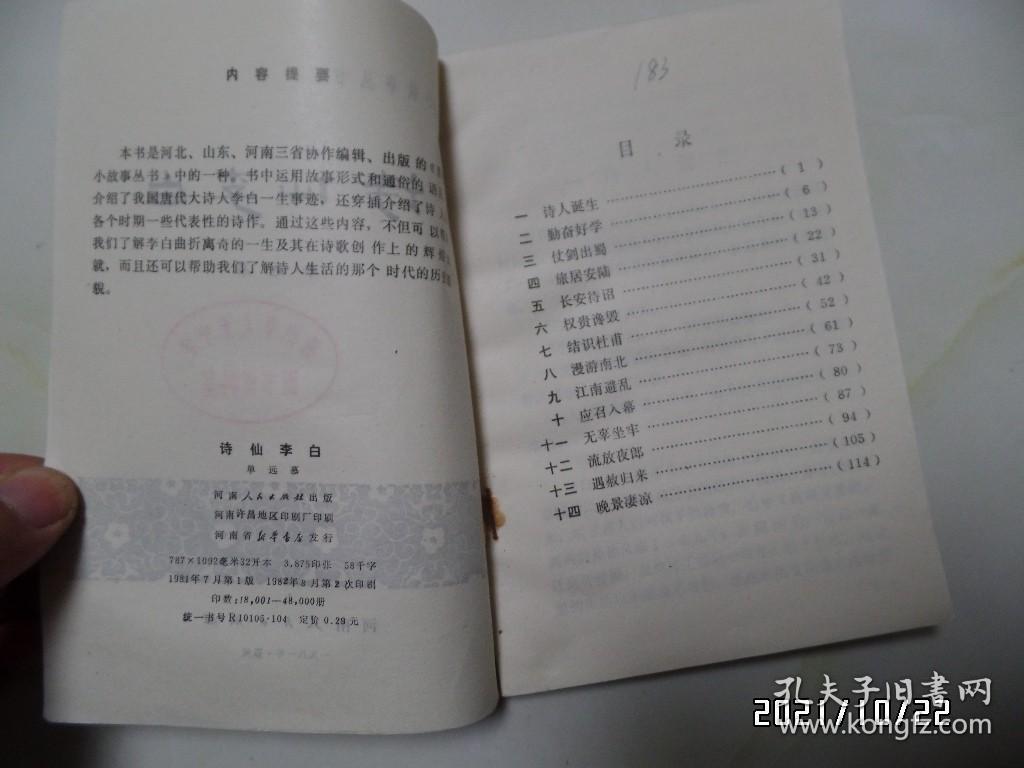 内容提要
本书是河北、山东、河南三省协作编辑、出版的《
小故事丛书》中的一种。书中运用故事形式和通俗的语
介绍了我国唐代大诗人李白一生事迹，还穿插介绍了诗人
各个时期一些代表性的诗作。通过这些内容，不但可以
我们了解李白曲折离奇的一生及其在诗歌创作上的辉煌
就，而且还可以帮助我们了解诗人生活的那个时代的历史
貌。
诗仙李白
单远慕
河南人民出版社出版
河南许昌地区印刷厂印刷
河南省新华书店发行
787×1092毫米32开本 3.875印张 58千字
1981年7月第1版 1982年8月第2次印刷
印数：18,001—48,000册
统一书号R10105·104 定价0.29元
183
目录
一 诗人诞生……（1）
二 勤奋好学……（6）
三 仗剑出蜀……（13）
四 旅居安陆……（22）
五 长安待诏……（31）
六 权贵谗毁……（42）
七 结识杜甫……（52）
八 漫游南北……（61）
九 江南避乱……（73）
十 应召入幕……（80）
十一 无辜坐牢……（87）
十二 流放夜郎……（94）
十三 遇赦归来……（105）
十四 晚景凄凉……（114）
孔夫子旧书网
www.kongfz.com
2021/10/22